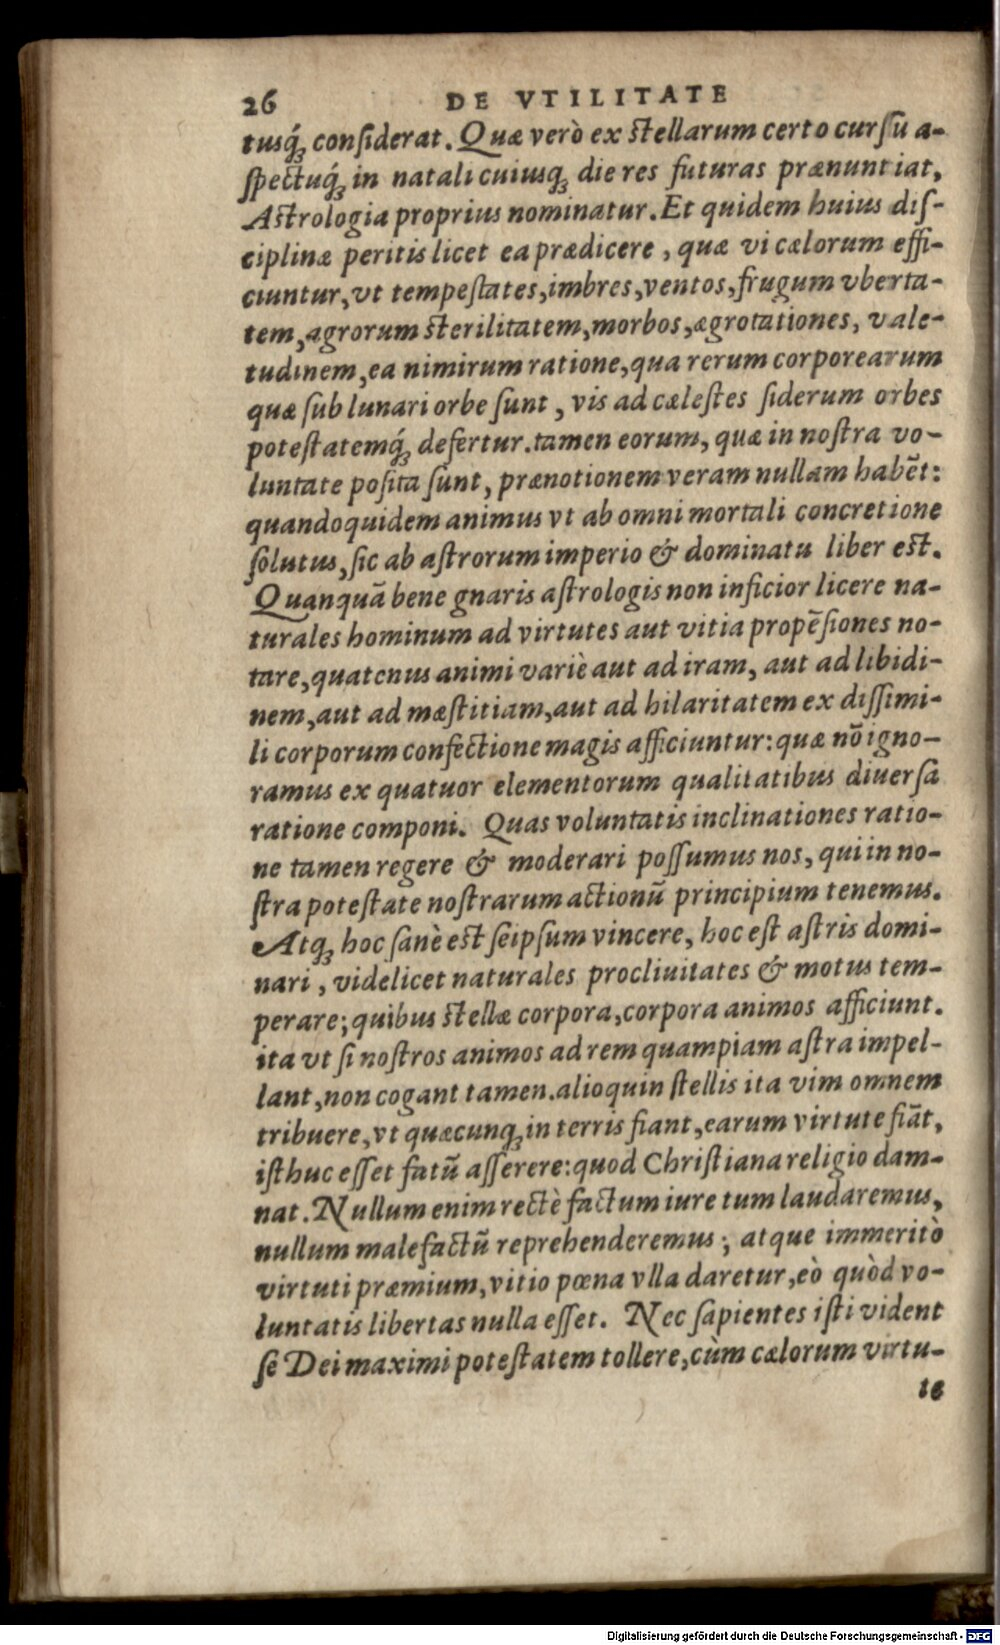 26 DE VTILITATE
tusq́ꝫ conſiderat. Quæ verò ex ſtellarum certo curſu a-
ſpectuq́ꝫ in natali cuiusqꝫ die res futuras prænuntiat,
Aſtrologia proprius nominatur. Et quidem huius diſ-
ciplinæ peritis licet ea prædicere, quæ vi cælorum effi-
ciuntur, vt tempeſtates, imbres, ventos, frugum vberta-
tem, agrorum ſterilitatem, morbos, ægrotationes, vale-
tudinem, ea nimirum ratione, qua rerum corporearum
quæ ſub lunari orbe ſunt, vis ad cæleſtes ſiderum orbes
poteſtatemq́ꝫ defertur. tamen eorum, quæ in noſtra vo-
luntate poſita ſunt, prænotionem veram nullam habẽt:
quandoquidem animus vt ab omni mortali concretione
ſolutus, ſic ab aſtrorum imperio & dominatu liber eſt.
Quanquã bene gnaris aſtrologis non inficior licere na-
turales hominum ad virtutes aut vitia propẽſiones no-
tare, quatenus animi variè aut ad iram, aut ad libidi-
nem, aut ad mæſtitiam, aut ad hilaritatem ex diſſimi-
li corporum confectione magis afficiuntur: quæ nõ igno-
ramus ex quatuor elementorum qualitatibus diuerſa
ratione componi. Quas voluntatis inclinationes ratio-
ne tamen regere & moderari poſſumus nos, qui in no-
ſtra poteſtate noſtrarum actionũ principium tenemus.
Atqꝫ hoc ſanè eſt ſeipſum vincere, hoc eſt aſtris domi-
nari, videlicet naturales procliuitates & motus tem-
perare; quibus ſtellæ corpora, corpora animos afficiunt.
ita vt ſi noſtros animos ad rem quampiam aſtra impel-
lant, non cogant tamen. alioquin ſtellis ita vim omnem
tribuere, vt quæcunqꝫ in terris fiant, earum virtute fiãt,
iſthuc eſſet fatũ aſſerere: quod Chriſtiana religio dam-
nat. Nullum enim rectè factum iure tum laudaremus,
nullum malefactũ reprehenderemus; atque immeritò
virtuti præmium, vitio pœna vlla daretur, eò quòd vo-
luntatis libertas nulla eſſet. Nec ſapientes iſti vident
ſe Dei maximi poteſtatem tollere, cùm cælorum virtu-
te
Digitalisierung gefördert durch die Deutsche Forschungsgemeinschaft - DFG